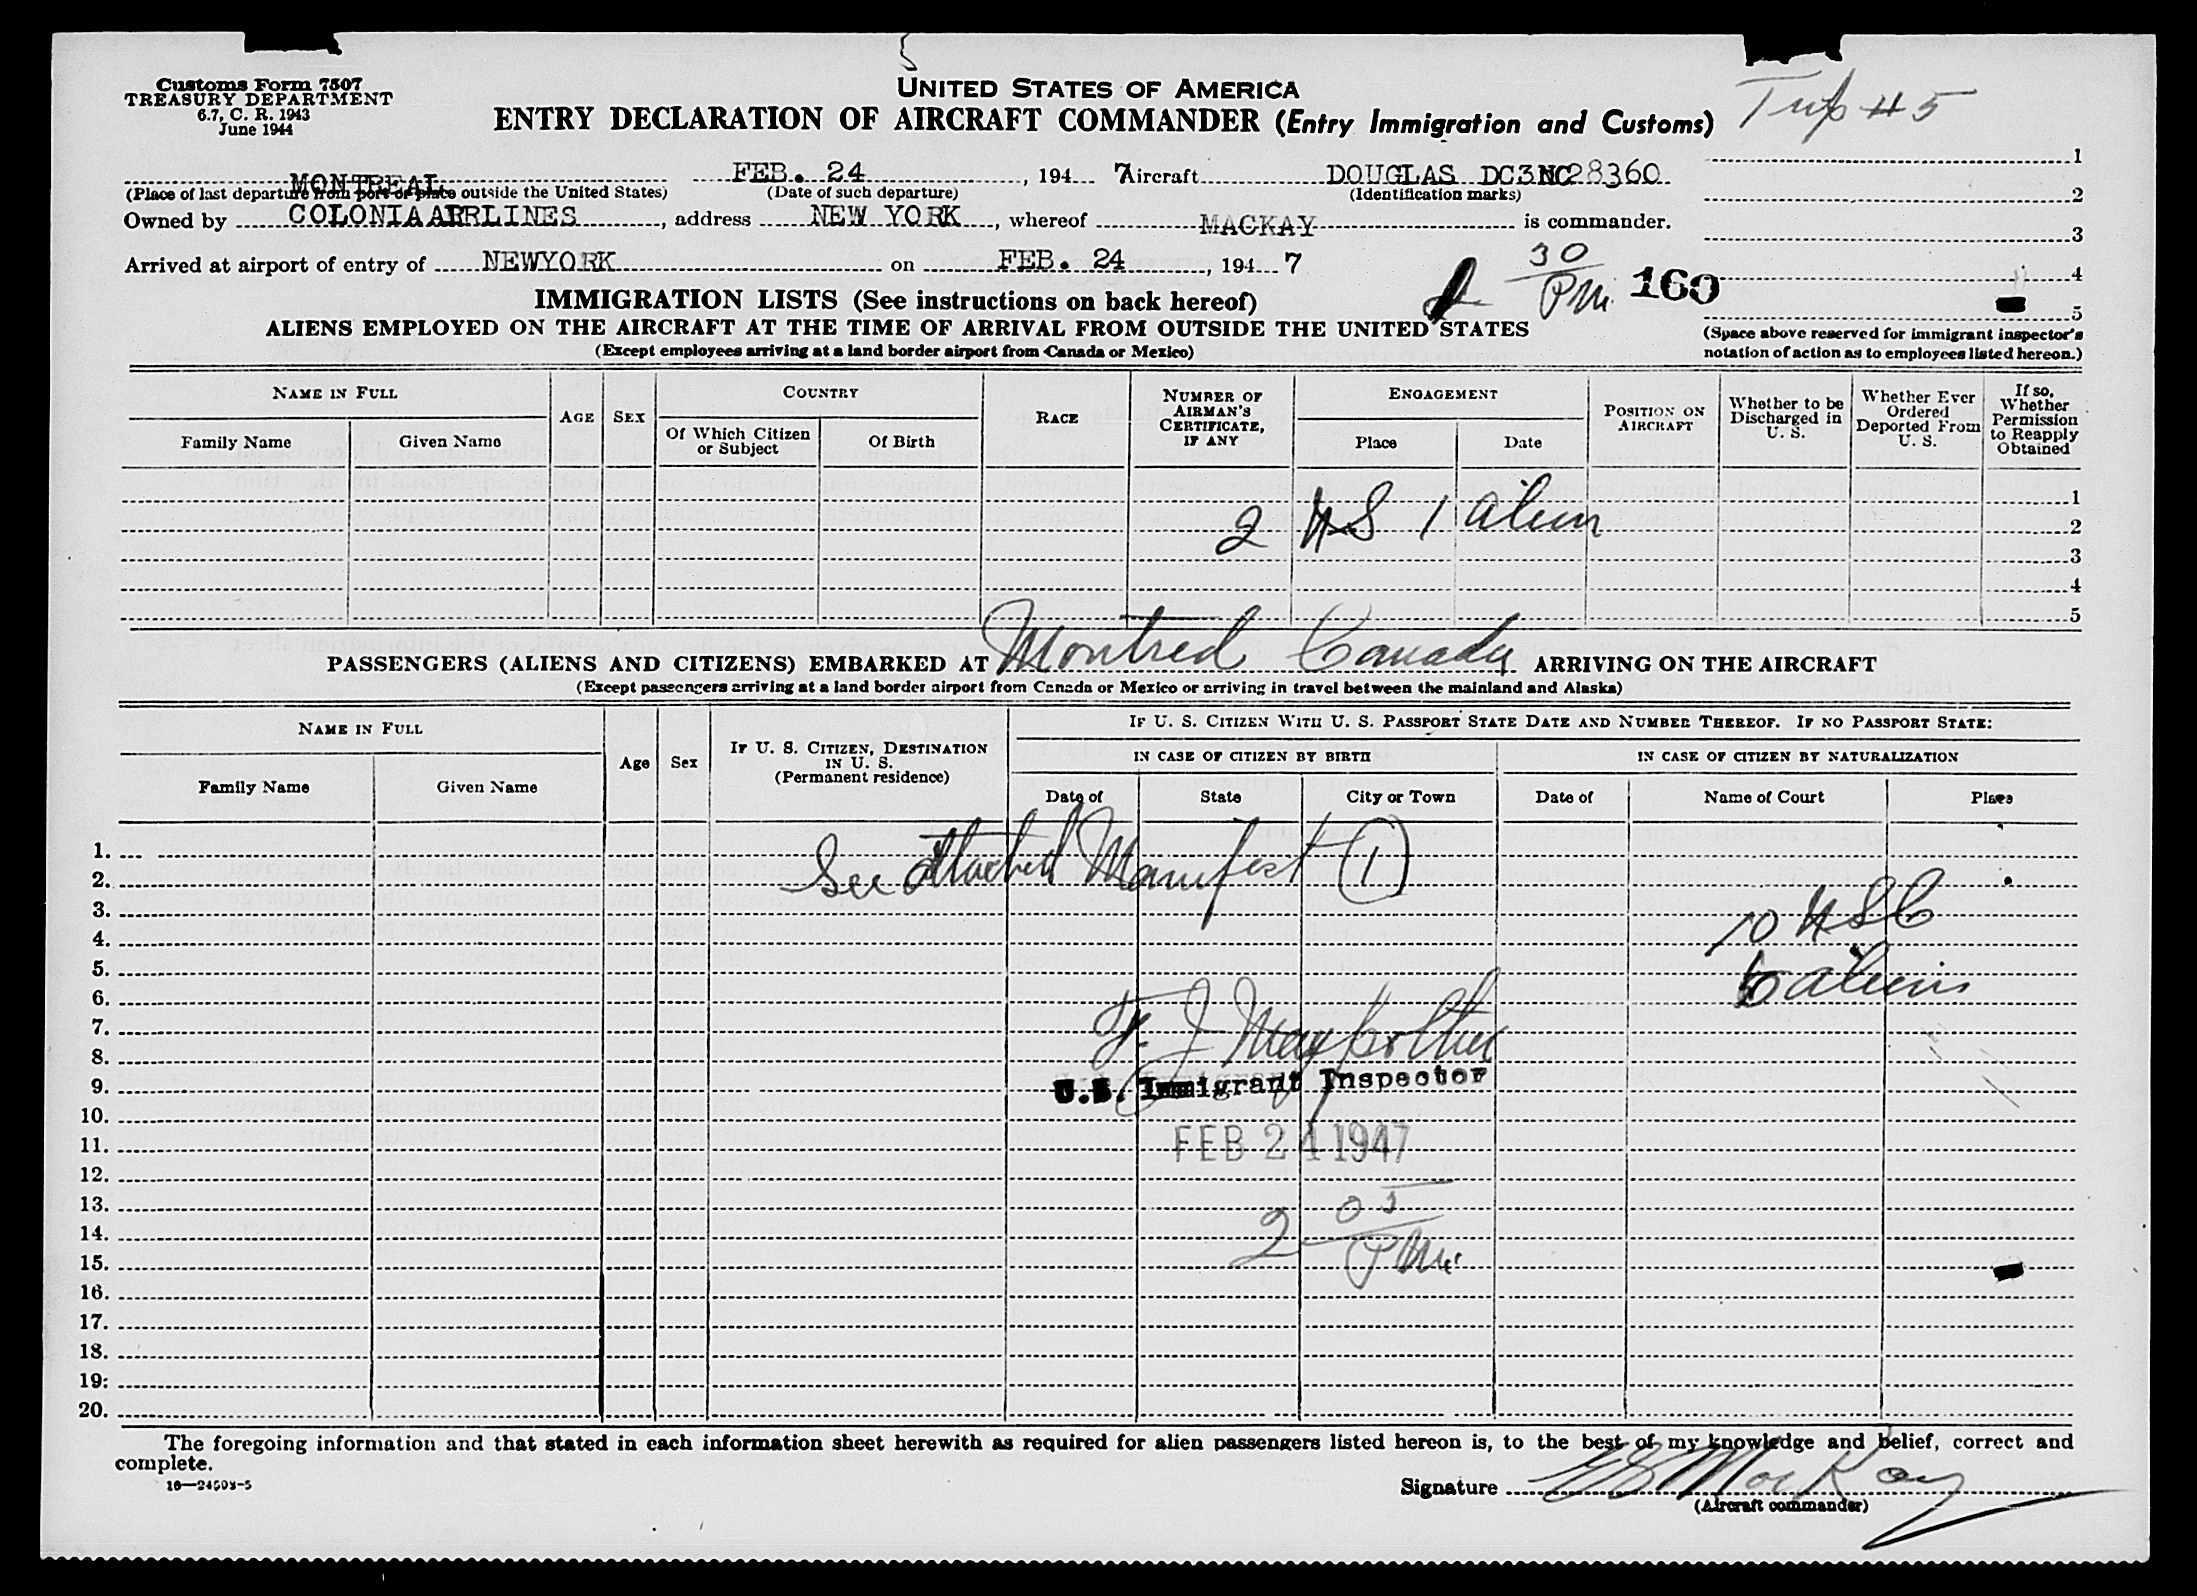 Customs Form 7507
TREASURY DEPARTMENT
6.7, C. R. 1943
June 1944
UNITED STATES OF AMERICA
ENTRY DECLARATION OF AIRCRAFT COMMANDER (Entry Immigration and Customs)
Trip #5
MONTREAL FEB. 24, 1947 Aircraft DOUGLAS DC3NC28360
(Place of last departure from port or place outside the United States) (Date of such departure) (Identification marks)
Owned by COLONIAAIRLINES, address NEW YORK, whereof MACKAY is commander.
Arrived at airport of entry of NEWYORK on FEB. 24, 1947
30
PM. 160
1
2
3
4
5
(Space above reserved for immigrant inspector's
notation of action as to employees listed hereon.)
IMMIGRATION LISTS (See instructions on back hereof)
ALIENS EMPLOYED ON THE AIRCRAFT AT THE TIME OF ARRIVAL FROM OUTSIDE THE UNITED STATES
(Except employees arriving at a land border airport from Canada or Mexico)
NAME IN FULL
Family Name Given Name
AGE SEX
COUNTRY
Of Which Citizen or Subject Of Birth
RACE
NUMBER OF AIRMAN'S CERTIFICATE, IF ANY
ENGAGEMENT
Place Date
POSITION ON AIRCRAFT
Whether to be Discharged in U. S.
Whether Ever Ordered Deported From U. S.
If so, Whether Permission to Reapply Obtained
1
2 US 1 Alien
2
3
4
5
PASSENGERS (ALIENS AND CITIZENS) EMBARKED AT Montreal Canada ARRIVING ON THE AIRCRAFT
(Except passengers arriving at a land border airport from Canada or Mexico or arriving in travel between the mainland and Alaska)
NAME IN FULL
Family Name Given Name
Age Sex
IF U. S. CITIZEN, DESTINATION IN U. S.
(Permanent residence)
IF U. S. CITIZEN WITH U. S. PASSPORT STATE DATE AND NUMBER THEREOF. IF NO PASSPORT STATE:
IN CASE OF CITIZEN BY BIRTH IN CASE OF CITIZEN BY NATURALIZATION
Date of State City or Town Date of Name of Court Place
1.
See attached Manifest (1)
2.
3.
10 USC
4.
5.
aliens
6.
7.
F. J.
8.
9.
U.S. Immigrant Inspector
10.
11.
FEB 24 1947
12.
13.
2 05 PM.
14.
15.
16.
17.
18.
19.
20.
The foregoing information and that stated in each information sheet herewith as required for alien passengers listed hereon is, to the best of my knowledge and belief, correct and
complete.
16—24598-5
Signature MacKay
(Aircraft commander)